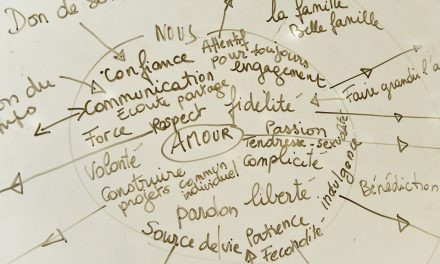 Don de so
NOUS
la famille
Belle famille
Attentif
Confiance
pour toujours
engagement
on du
communication
Ecoute partage
fidélité
Faire grandir l'a
Force
respect
AMOUR
Passion
Tendresse-sexualité
Complicité
Volonté
Construire
projets commun
individuel
indulgence
Bénédiction
pardon
liberté
Source de vie
Patience
Fecondité